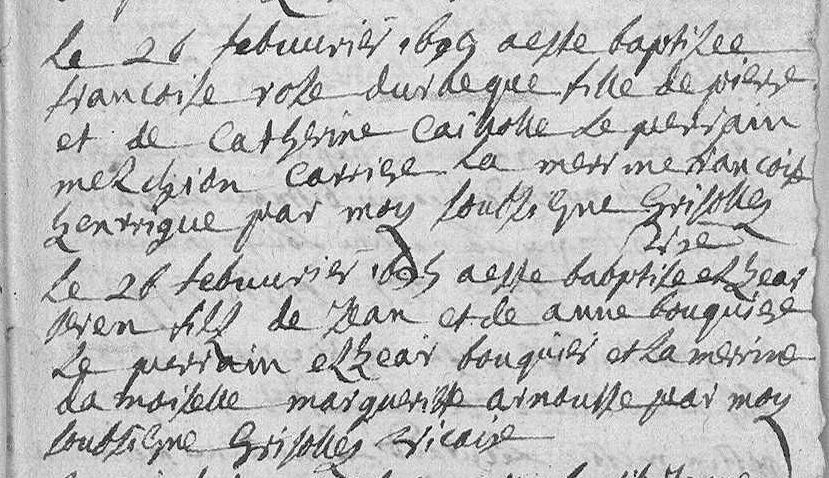 Le 26 febvurier 1695 a este baptisee
francoise rose durdegue fille de pierre
et de Catherine Caillolle Le perrain
melchion Carriere La merrine francoise
henrrigue par moy soubsigne Grisolles
vire
Le 26 febvurier 1695 a este babptise elzear
fils de Jean et de anne bouguiere
Le perrain elzear bouguier et La merrine
damoiselle margueritte arnousse par moy
soubsigne Grisolles vicaire